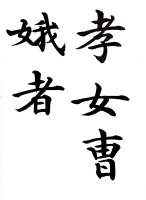 孝女曹
娥者